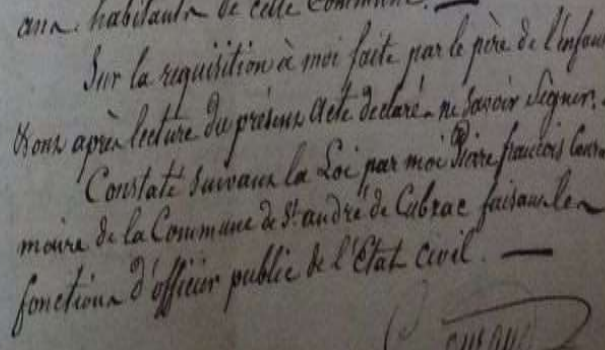 ans. habitants de cette Commune. —
Sur la requisition à moi faite par le père de l'enfan
après lecture du présent Acte declaré ne Savoir Signer.
Constaté Suivant la Loi par moi Pierre françois
maire de la Commune de St. andré de Cubzac faisant les
fonctions d'officier public de l'Etat Civil. —